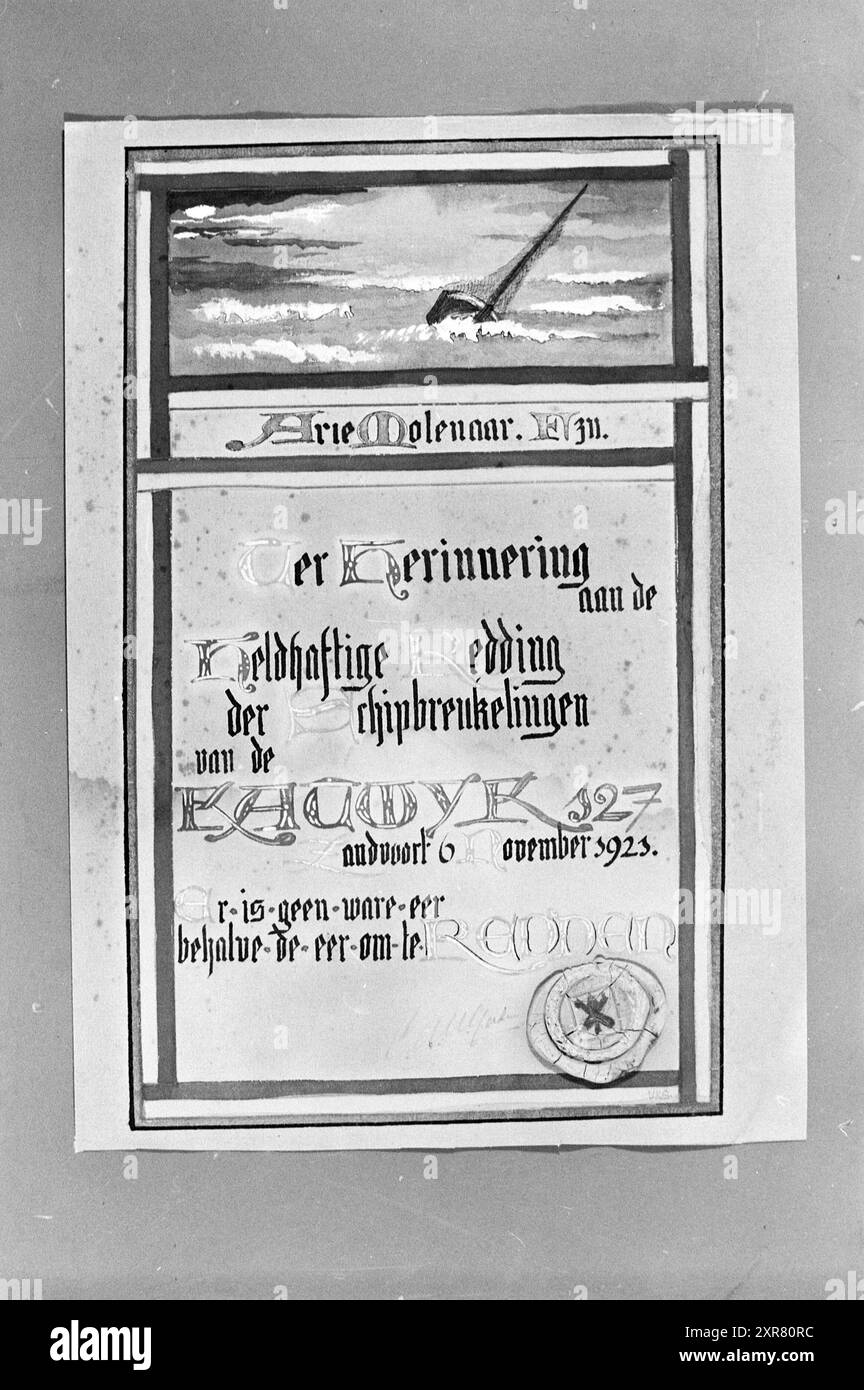 Arie Molenaar.
Ter Herinnering
aan de
Heldhaftige Redding
der Schipbreukelingen
van de
KATWYK 127
Zandvoort 6 November 1921.
Er-is-geen-ware-eer
behalve-de-eer-om-te-REDDEN
alamy
Image ID: 2XR80RC
www.alamy.com